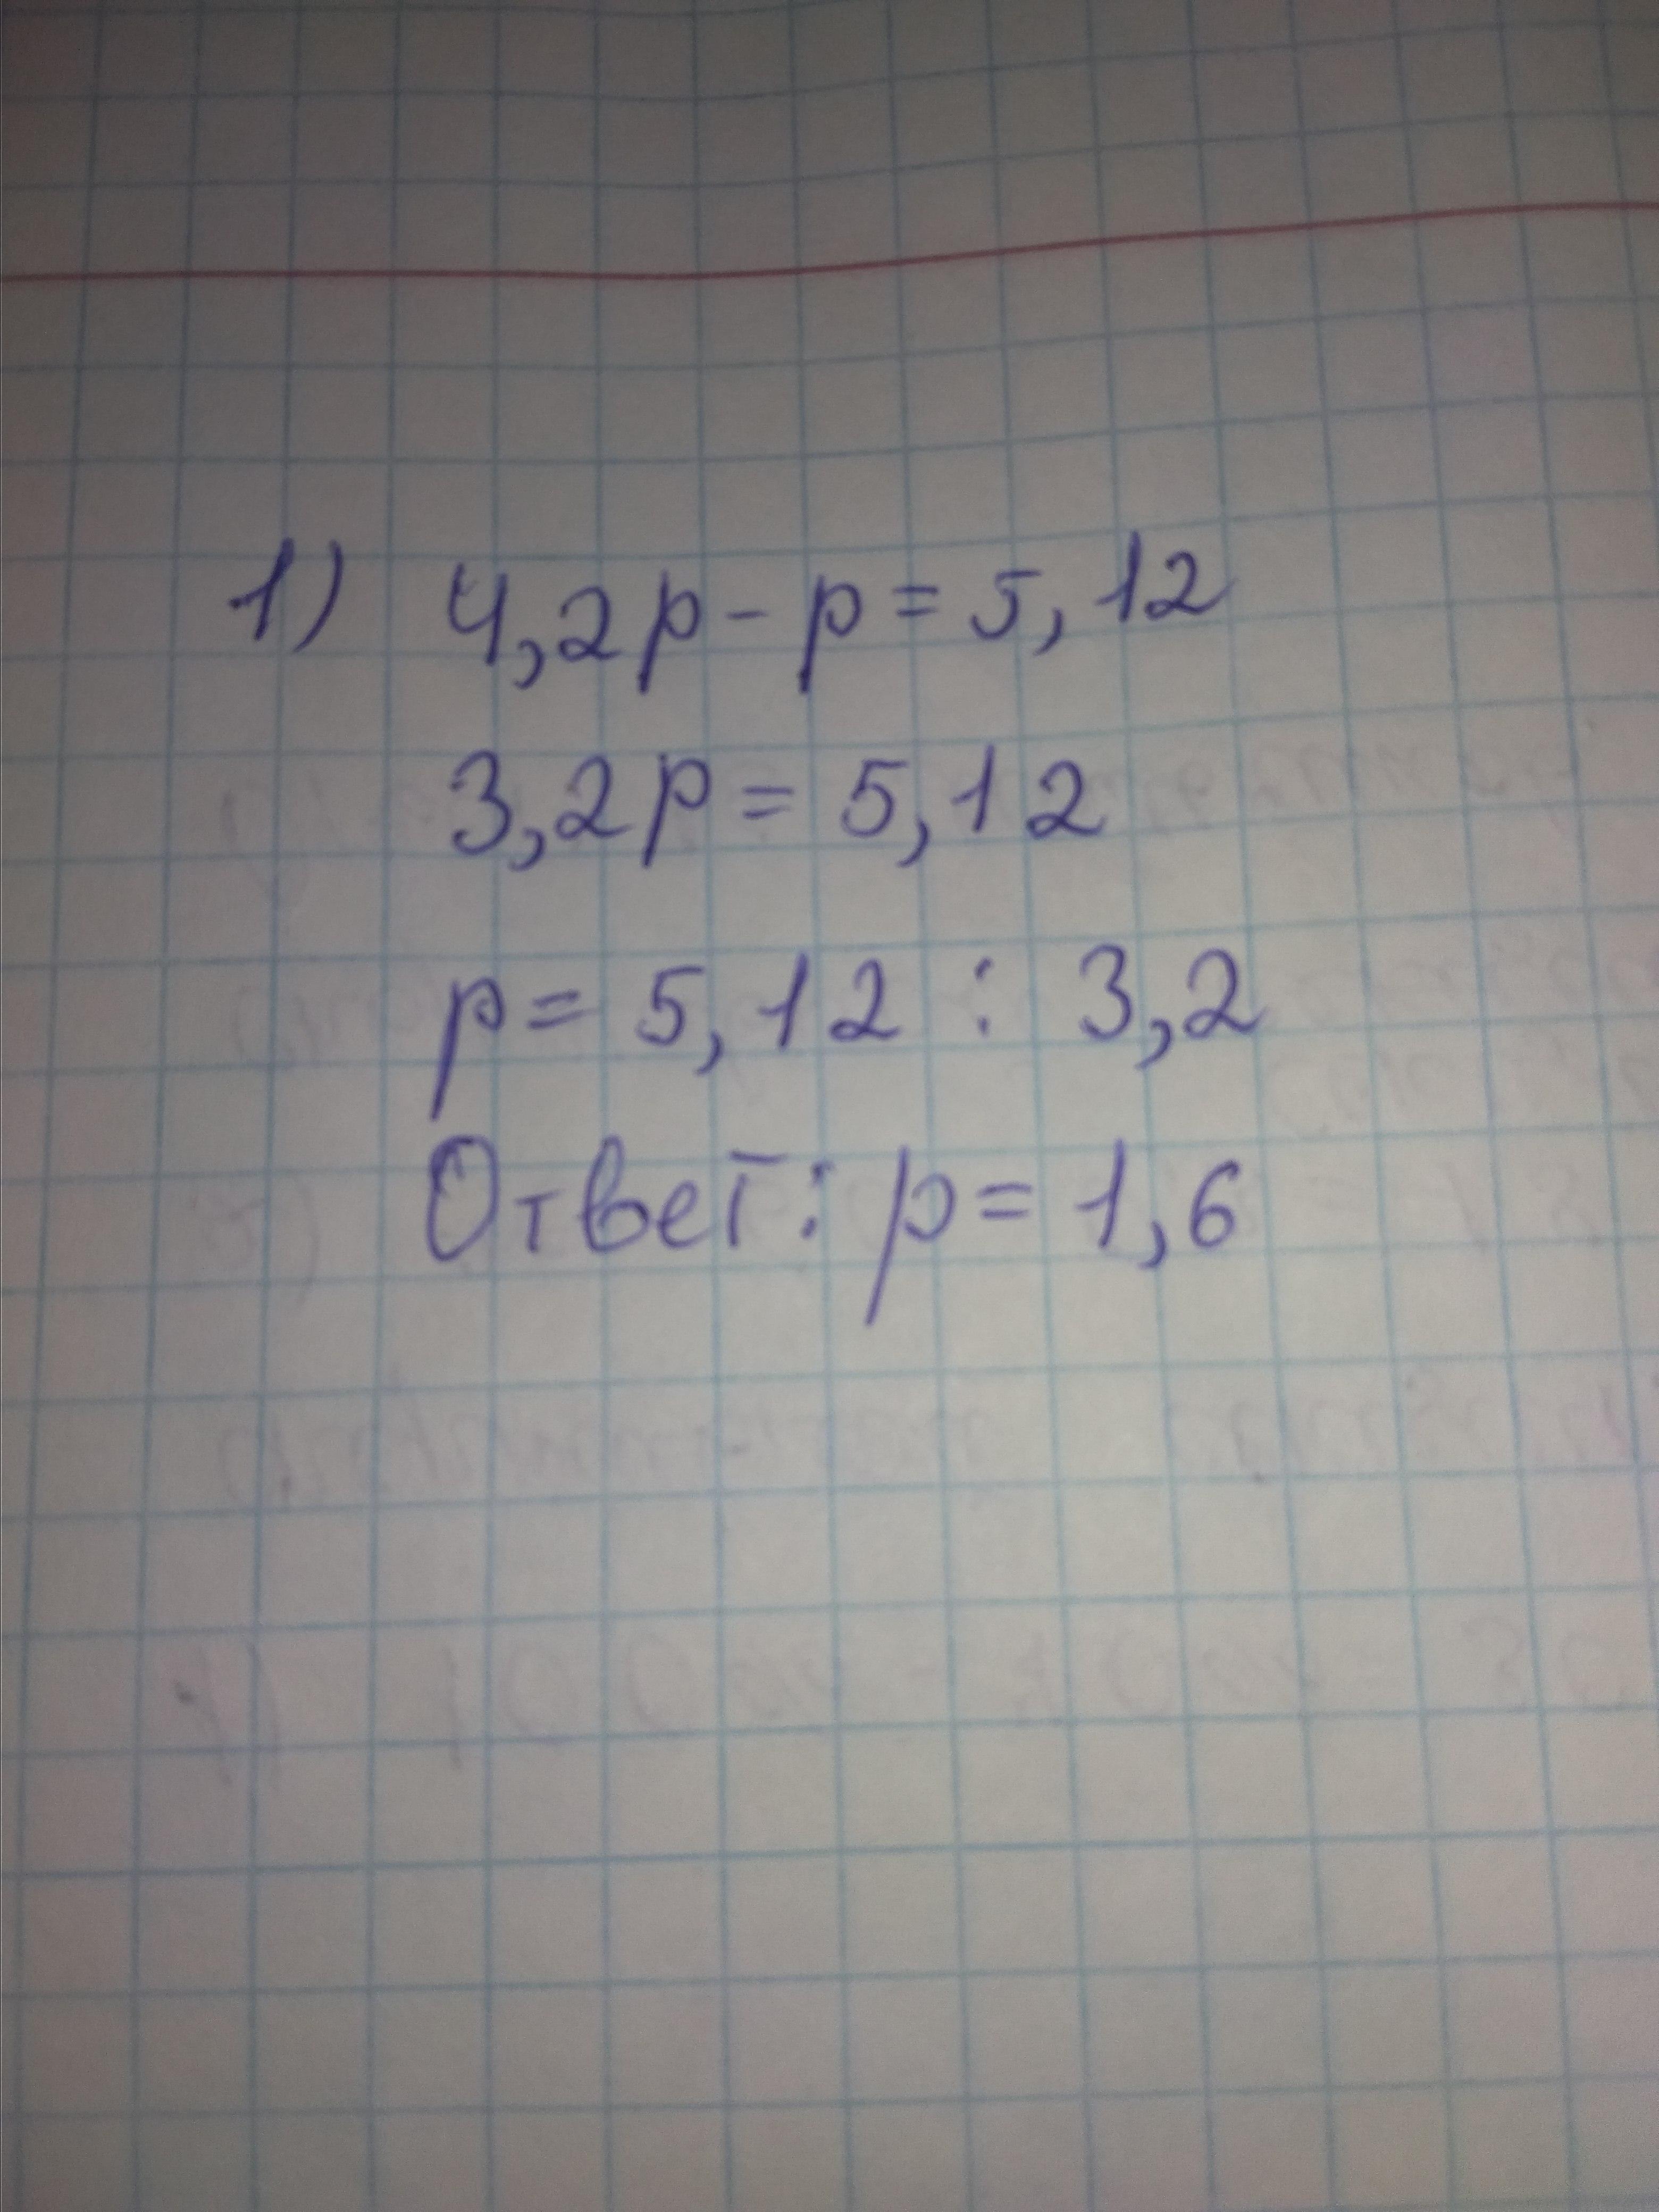 1) 4,2p - p = 5,12
3,2p = 5,12
p = 5,12 : 3,2
Ответ: p = 1,6